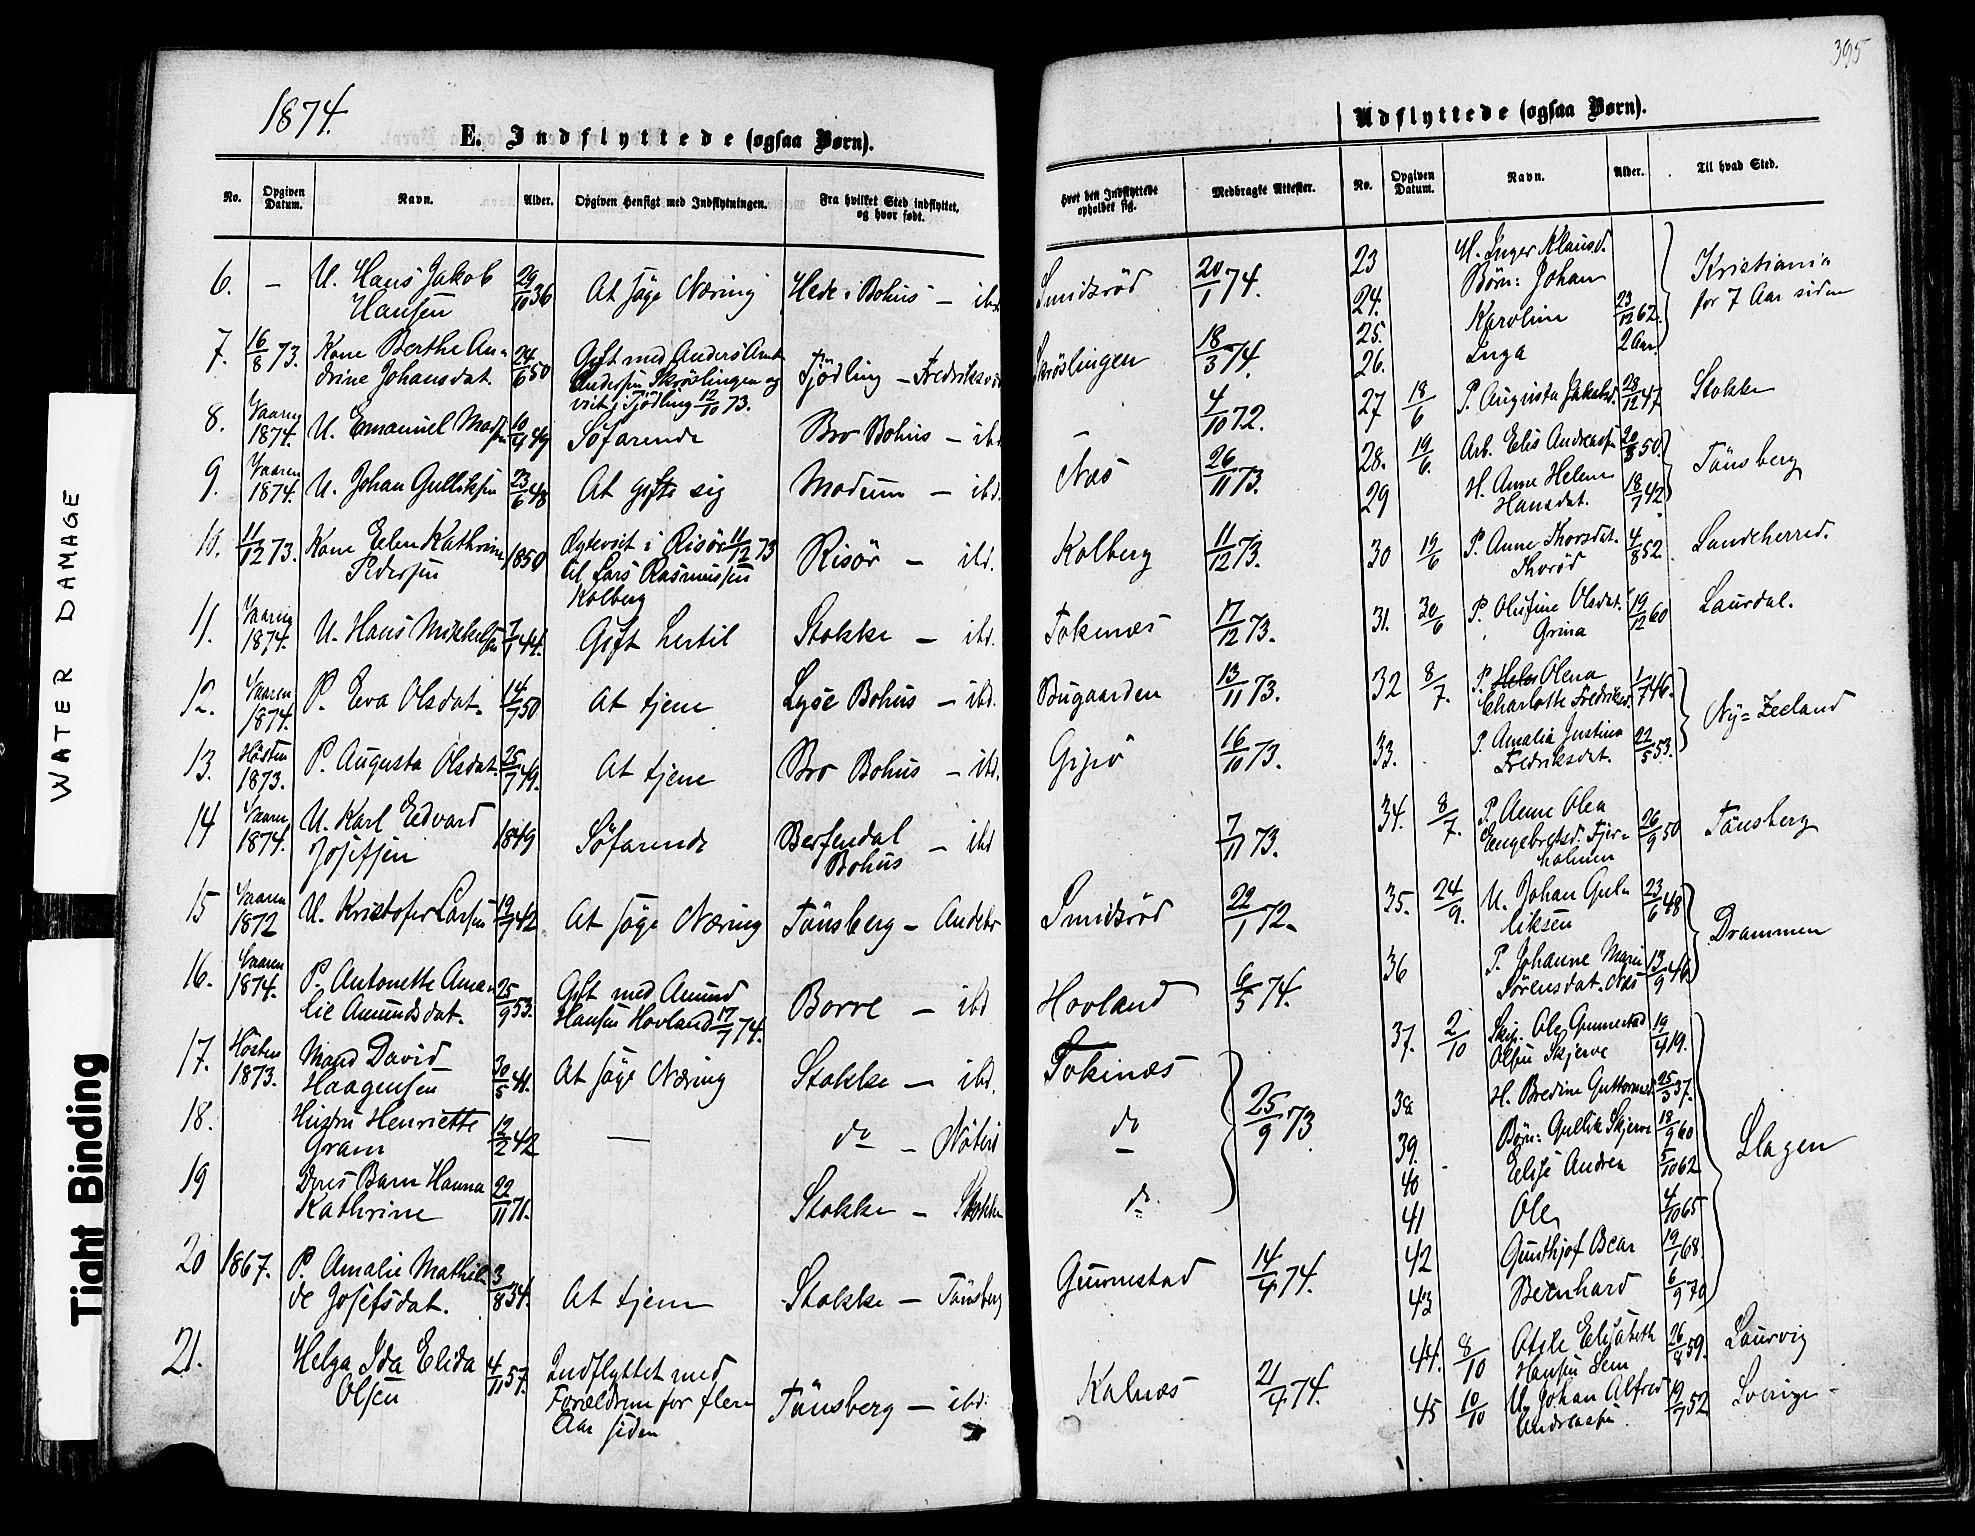 395
1874.
E. Indflyttede (ogsaa Børn).
No.
Opgiven Datum.
Navn.
Alder.
Opgiven Hensigt med Indflytningen.
Fra hvilket Sted indflyttet, og hvor født.
Hvor den Indflyttede opholder sig.
Medbragte Attester.
6. - U. Hans Jakob 29/10 36 At søge Næring Hede i Bohus - ibd. Smidsrød 20/1 74.
Hansen
7. 16/8 73. Kone Berthe An- 24/6 50 Gift med Anders Tjödling - Skröslingen 18/3 74.
drine Johansdat. Andersen Skröslingen og
viet i Tjödling 12/10 73.
8. Vaaren 1874. U. Emanuel 10/4 49 Söfarende Bro Bohus - ibd. - 4/10 72.
9. Vaaren 1874. U. Johan Gulliksen 23/6 48 At gifte sig Modum - ibd. Næs 26/11 73.
10. 11/12 73. Kone Elen Kathrine 1850 Egteviet i Risör 11/12 73 Risör - ibd. Kolberg 11/12 73.
Pedersen til Lars Rasmussen
Kolberg
11. Vaaren 1874. U. Hans Mikkelsen 7/1 44. Gift hertil Stokke - ibd. Tokenæs 17/12 73.
12. Vaaren 1874. P. Eva Olsdat. 14/7 50 At tjene Lyse Bohus - ibd. Bugaarden 13/11 73.
13. Hösten 1873. P. Augusta Olsdat. 25/7 49. At tjene Bro Bohus - ibd. Gipö 16/10 73.
14 Vaaren 1874. U. Karl Edvard 1849 Söfarende Berfendal - ibd 7/11 73.
Josefsen Bohus
15 Vaaren 1872 U. Kristofer Larsen 19/7 42 At søge Næring Tönsberg - Andebo Smidsrød 22/1 72.
16. Vaaren 1874. P. Antonette Ama- 25/9 53. Gift med Amund Borre - ibd Hovland 6/5 74.
lie Amundsdat. Hansen Hovland 17/7 74.
17. Hösten 1873. Mand David 30/5 41. At søge Næring Stokke - ibd. Tokenæs 25/9 73
Haagensen
18. Hustru Henriette 12/2 42 - do - Nöterö do
Gram
19 Deres Barn Hanna 22/11 71. Stokke - Stokke do.
Kathrine
20 1867. P. Amalie Mathil- 3/8 54. At tjene Stokke - Tönsberg Gunnestad 14/4 74.
de Josefsdat.
21. Helga Ida Elida 4/11 57. Indflyttet med Tönsberg - ibd. Kalnæs 21/4 74.
Olsen Forældrene for flere
Aar siden
Udflyttede (ogsaa Børn).
No.
Opgiven Datum.
Navn.
Alder.
Til hvad Sted.
23 H. Inger Klausd. Kristiania
24. Börn: Johan for 7 Aar siden
25. Karoline 23/12 62.
26. Inga 2 Aar.
27 18/6 P. Augusta Jakobsd. 28/12 47 Stokke
28. 19/6. Arb. Elis Andreasen 20/3 50. Tönsberg
29 H. Anne Helene 18/7 42
Hansdat.
30 19/6 P. Anne Thorsdat. 4/8 52. Sandeherred.
Thoröd
31. 30/6 P. Olufine Olsdat. 19/12 60 Laurdal.
Grina
32 8/7. P. Olena 1/7 46. Ny=Zeeland
Charlotte Fredriksd.
33. P. Amalia Justina 22/5 53.
Fredriksdat.
34. 8/7. P. Anne Olea 26/9 50 Tönsberg
Engebretsd. Fjær=
holmen
35. 24/9. U. Johan Gul= 23/6 48 Drammen
liksen
36 P. Johanne Marie 13/9 46
Sörensdat. Næs
37. 2/10 Skip. Ole Gunnestad 19/4 19. Slagen
Olsen Skjerve
38 H. Bredine Guttormsd. 25/3 37.
39. Börn: Gullik Skjerve 18/9 60
40 Elise Andrea 5/10 62
41 Ole 4/10 65
42 Gunthjof Bear 19/1 68.
43 Bernhard 6/9 70
44. 8/10 Elisabeth 26/8 59. Laurvig
Hansen Sem
45 10/10 U. Johan Alfred 19/7 52 Sverige -
Andreasen
WATER DAMAGE
Tight Binding